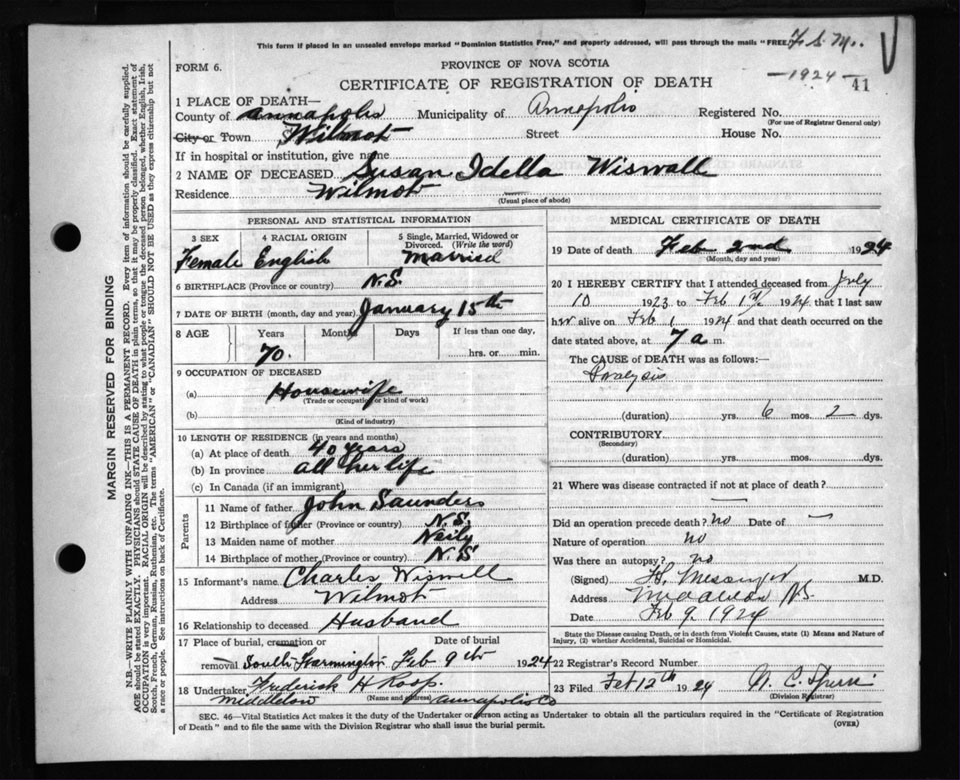 This form if placed in an unsealed envelope marked "Dominion Statistics Free," and properly addressed, will pass through the mails "FREE."
F. S. M.
FORM 6.
PROVINCE OF NOVA SCOTIA
CERTIFICATE OF REGISTRATION OF DEATH
—1924—
41
1 PLACE OF DEATH—
County of Annapolis Municipality of Annapolis Registered No.
(For use of Registrar General only)
City or Town Wilmot Street House No.
If in hospital or institution, give name
2 NAME OF DECEASED Susan Idella Wiswall
Residence Wilmot
(Usual place of abode)
PERSONAL AND STATISTICAL INFORMATION
3 SEX 4 RACIAL ORIGIN 5 Single, Married, Widowed or Divorced. (Write the word)
Female English Married
6 BIRTHPLACE (Province or country) N.S.
7 DATE OF BIRTH (month, day and year) January 15th
8 AGE Years Months Days If less than one day,
70. hrs. or min.
9 OCCUPATION OF DECEASED
(a) Housewife
(Trade or occupation or kind of work)
(b)
(Kind of industry)
10 LENGTH OF RESIDENCE (in years and months)
(a) At place of death 40 years
(b) In province all her life
(c) In Canada (if an immigrant)
Parents
11 Name of father John Saunders
12 Birthplace of father (Province or country) N.S.
13 Maiden name of mother Neily
14 Birthplace of mother (Province or country) N.S
15 Informant's name Charles Wiswell
Address Wilmot
16 Relationship to deceased Husband
17 Place of burial, cremation or Date of burial
removal South Farmington Feb 9th 1924
18 Undertaker Frederick H Roop.
(Name and address)
Middleton Annapolis Co
MEDICAL CERTIFICATE OF DEATH
19 Date of death Feb 2nd 1924
(Month, day and year)
20 I HEREBY CERTIFY that I attended deceased from July
10 1923 to Feb 1st 1924 that I last saw
her alive on Feb 1 1924 and that death occurred on the
date stated above, at 7 a m.
The CAUSE of DEATH was as follows:
Paralysis
(duration) yrs. 6 mos. 2 dys.
CONTRIBUTORY
(Secondary)
(duration) yrs. mos. dys.
21 Where was disease contracted if not at place of death?
—
Did an operation precede death? no Date of —
Nature of operation no
Was there an autopsy? no
(Signed) Messenger M.D.
Address Middleton N.S.
Feb 9, 1924
State the Disease causing Death, or in death from Violent Causes, state (1) Means and Nature of Injury, (2) whether Accidental, Suicidal or Homicidal.
22 Registrar's Record Number
23 Filed Feb 12th 1924
(Division Registrar)
SEC. 46—Vital Statistics Act makes it the duty of the Undertaker or person acting as Undertaker to obtain all the particulars required in the "Certificate of Registration
of Death" and to file the same with the Division Registrar who shall issue the burial permit. (OVER)
MARGIN RESERVED FOR BINDING
N.B.—WRITE PLAINLY WITH UNFADING INK—THIS IS A PERMANENT RECORD. Every item of information should be carefully supplied.
AGE should be stated EXACTLY. PHYSICIANS should STATE CAUSE OF DEATH in plain terms, so that it may be properly classified. Exact statement of
OCCUPATION is very important. RACIAL ORIGIN will be described by stating to what people or tongue the deceased person belonged, whether English, Irish,
Scotch, French, German, Russian, Ruthenian, etc. The terms "AMERICAN" or "CANADIAN" SHOULD NOT BE USED as they express citizenship but not
a race or people. See instructions on back of Certificate.